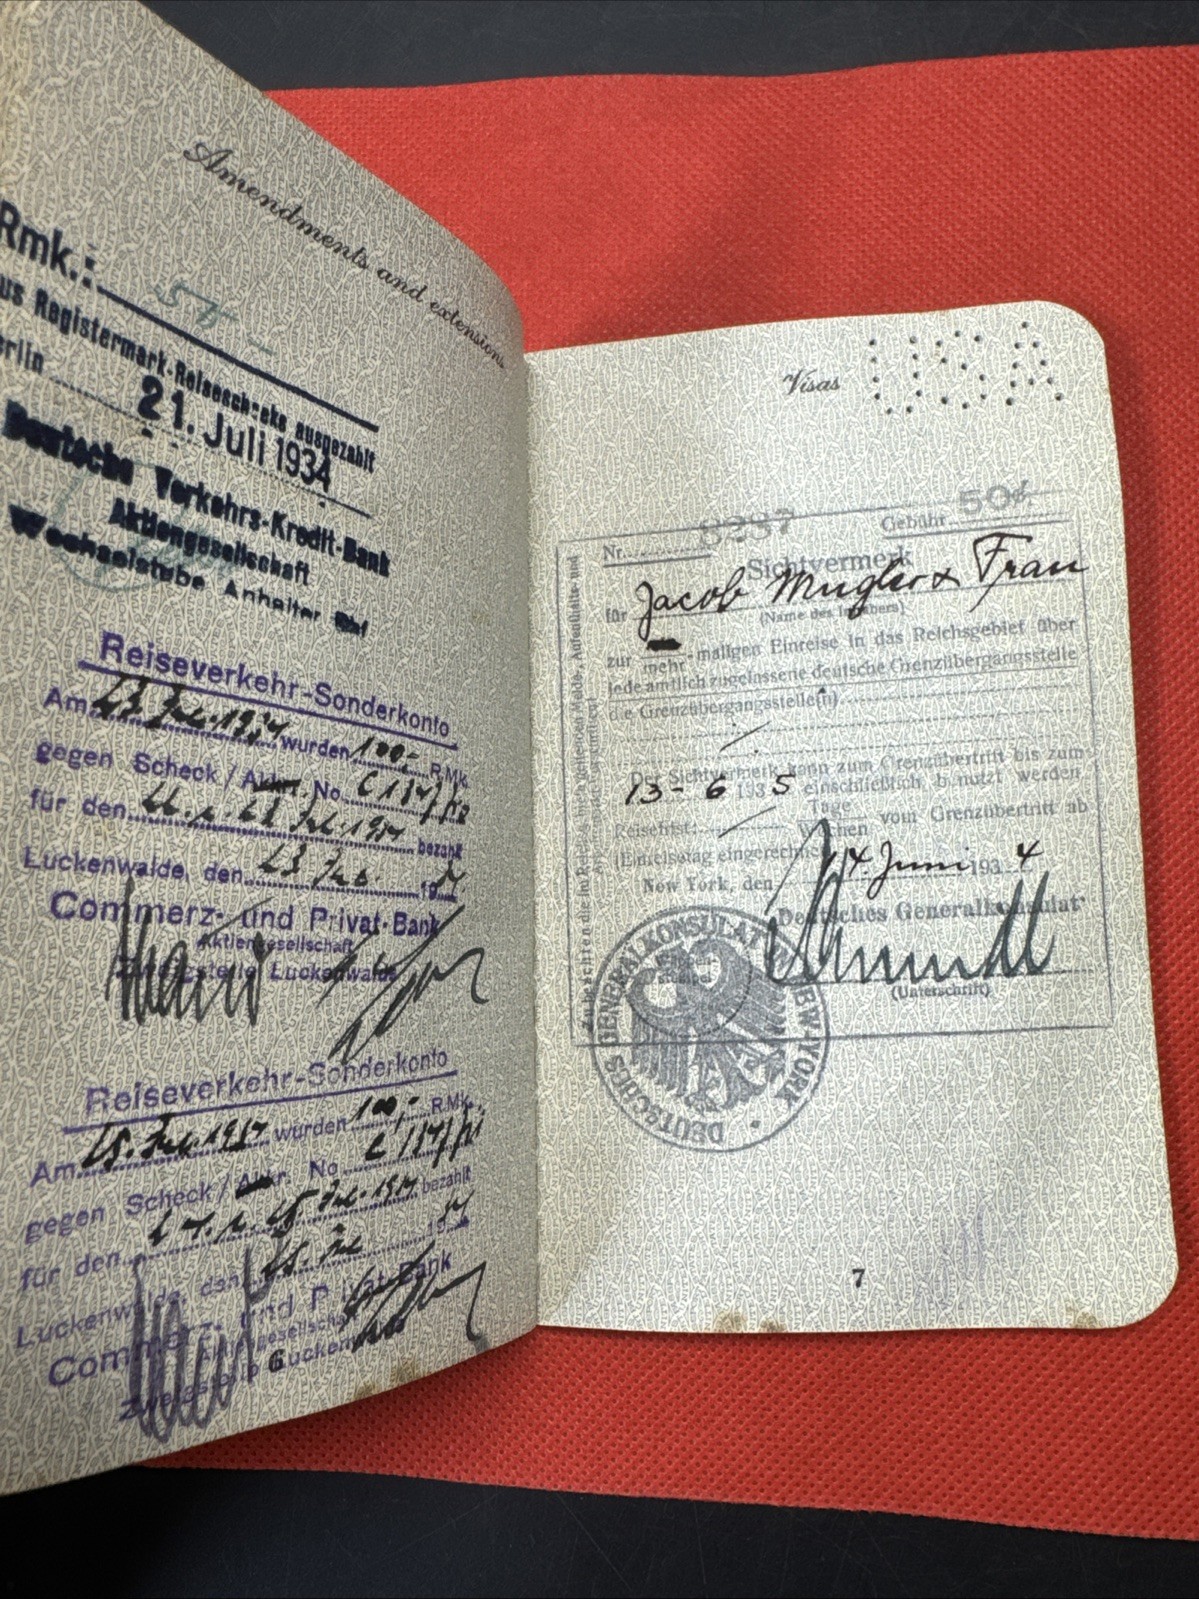 Amendments and extensions
Rmk.: 50
us Registermark-Reiseschecks ausgezahlt
erlin 21. Juli 1934
Deutsche Verkehrs-Kredit-Bank
Aktiengesellschaft
Wechselstube Anhalter Bhf
Reiseverkehr-Sonderkonto
Am 23. Jul. 1934 wurden 100,- RMk.
gegen Scheck / No.
für den Jul. 1934 bezahlt
Luckenwalde, den 23. Jul. 1934
Commerz- und Privat-Bank
Aktiengesellschaft
Zweigstelle Luckenwalde
Reiseverkehr-Sonderkonto
Am 25. Jul. 1934 wurden 100,- RMk.
gegen Scheck / No
für den 25 Jul. 1934 bezahlt
Luckenwalde, den 25. Jul 34
Commerz- und Privat-Bank
Aktiengesellschaft
Zweigstelle Luckenwalde
6
Visas
USA
Nr. 8287 Gebühr 50¢
Sichtvermerk
für Jacob Mugler & Frau
(Name des Inhabers)
zur mehr-maligen Einreise in das Reichsgebiet über
jede amtlich zugelassene deutsche Grenzübergangsstelle
die Grenzübergangsstelle(n)
Der Sichtvermerk kann zum Grenzübertritt bis zum
13-6 1935 einschließlich benutzt werden
Reisefrist: Tage
Wochen vom Grenzübertritt ab
(Einreisetag eingerechnet)
New York, den 14. Juni 1934
Deutsches Generalkonsulat
(Unterschrift)
DEUTSCHES GENERALKONSULAT NEW-YORK
7